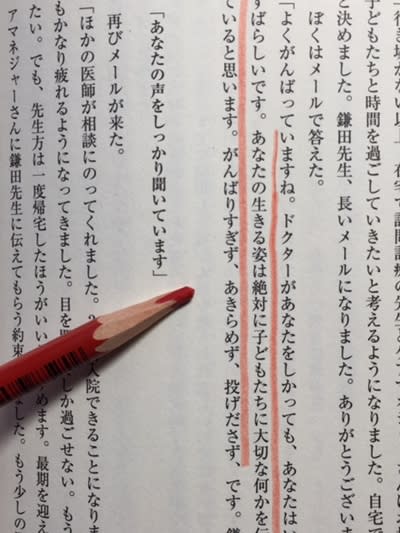 行き場がない以上、在宅で訪問診療の先生
子どもたちと時間を過ごしていきたいと考えるようになりました。自宅で
と決めました。鎌田先生、長いメールになりました。ありがとうございま
ぼくはメールで答えた。
「よくがんばっていますね。ドクターがあなたをしかっても、あなたはい
すばらしいです。あなたの生きる姿は絶対に子どもたちに大切な何かを伝
ていると思います。がんばりすぎず、あきらめず、投げださず、です。鎌
「あなたの声をしっかり聞いています」
再びメールが来た。
「ほかの医師が相談にのってくれました。 入院できることになりま
もかなり疲れるようになってきました。目を しか過ごせない。もう
たい。でも、先生方は一度帰宅したほうがいい めます。最期を迎え
アマネジャーさんに鎌田先生に伝えてもらう約束 ました。もう少しの